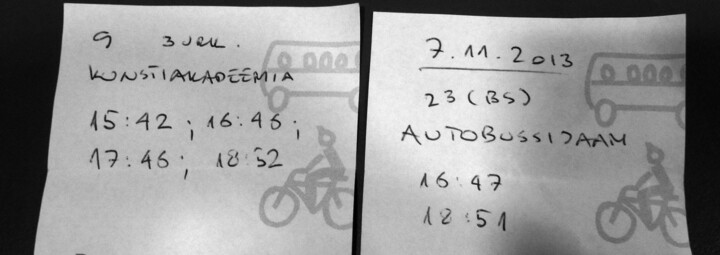 9 3 URK.
KUNSTIAKADEEMIA
15:42 ; 16:46 ;
17:46 ; 18:52
7.11.2013
23 (BS)
AUTOBUSSIJAAM
16:47
18:51